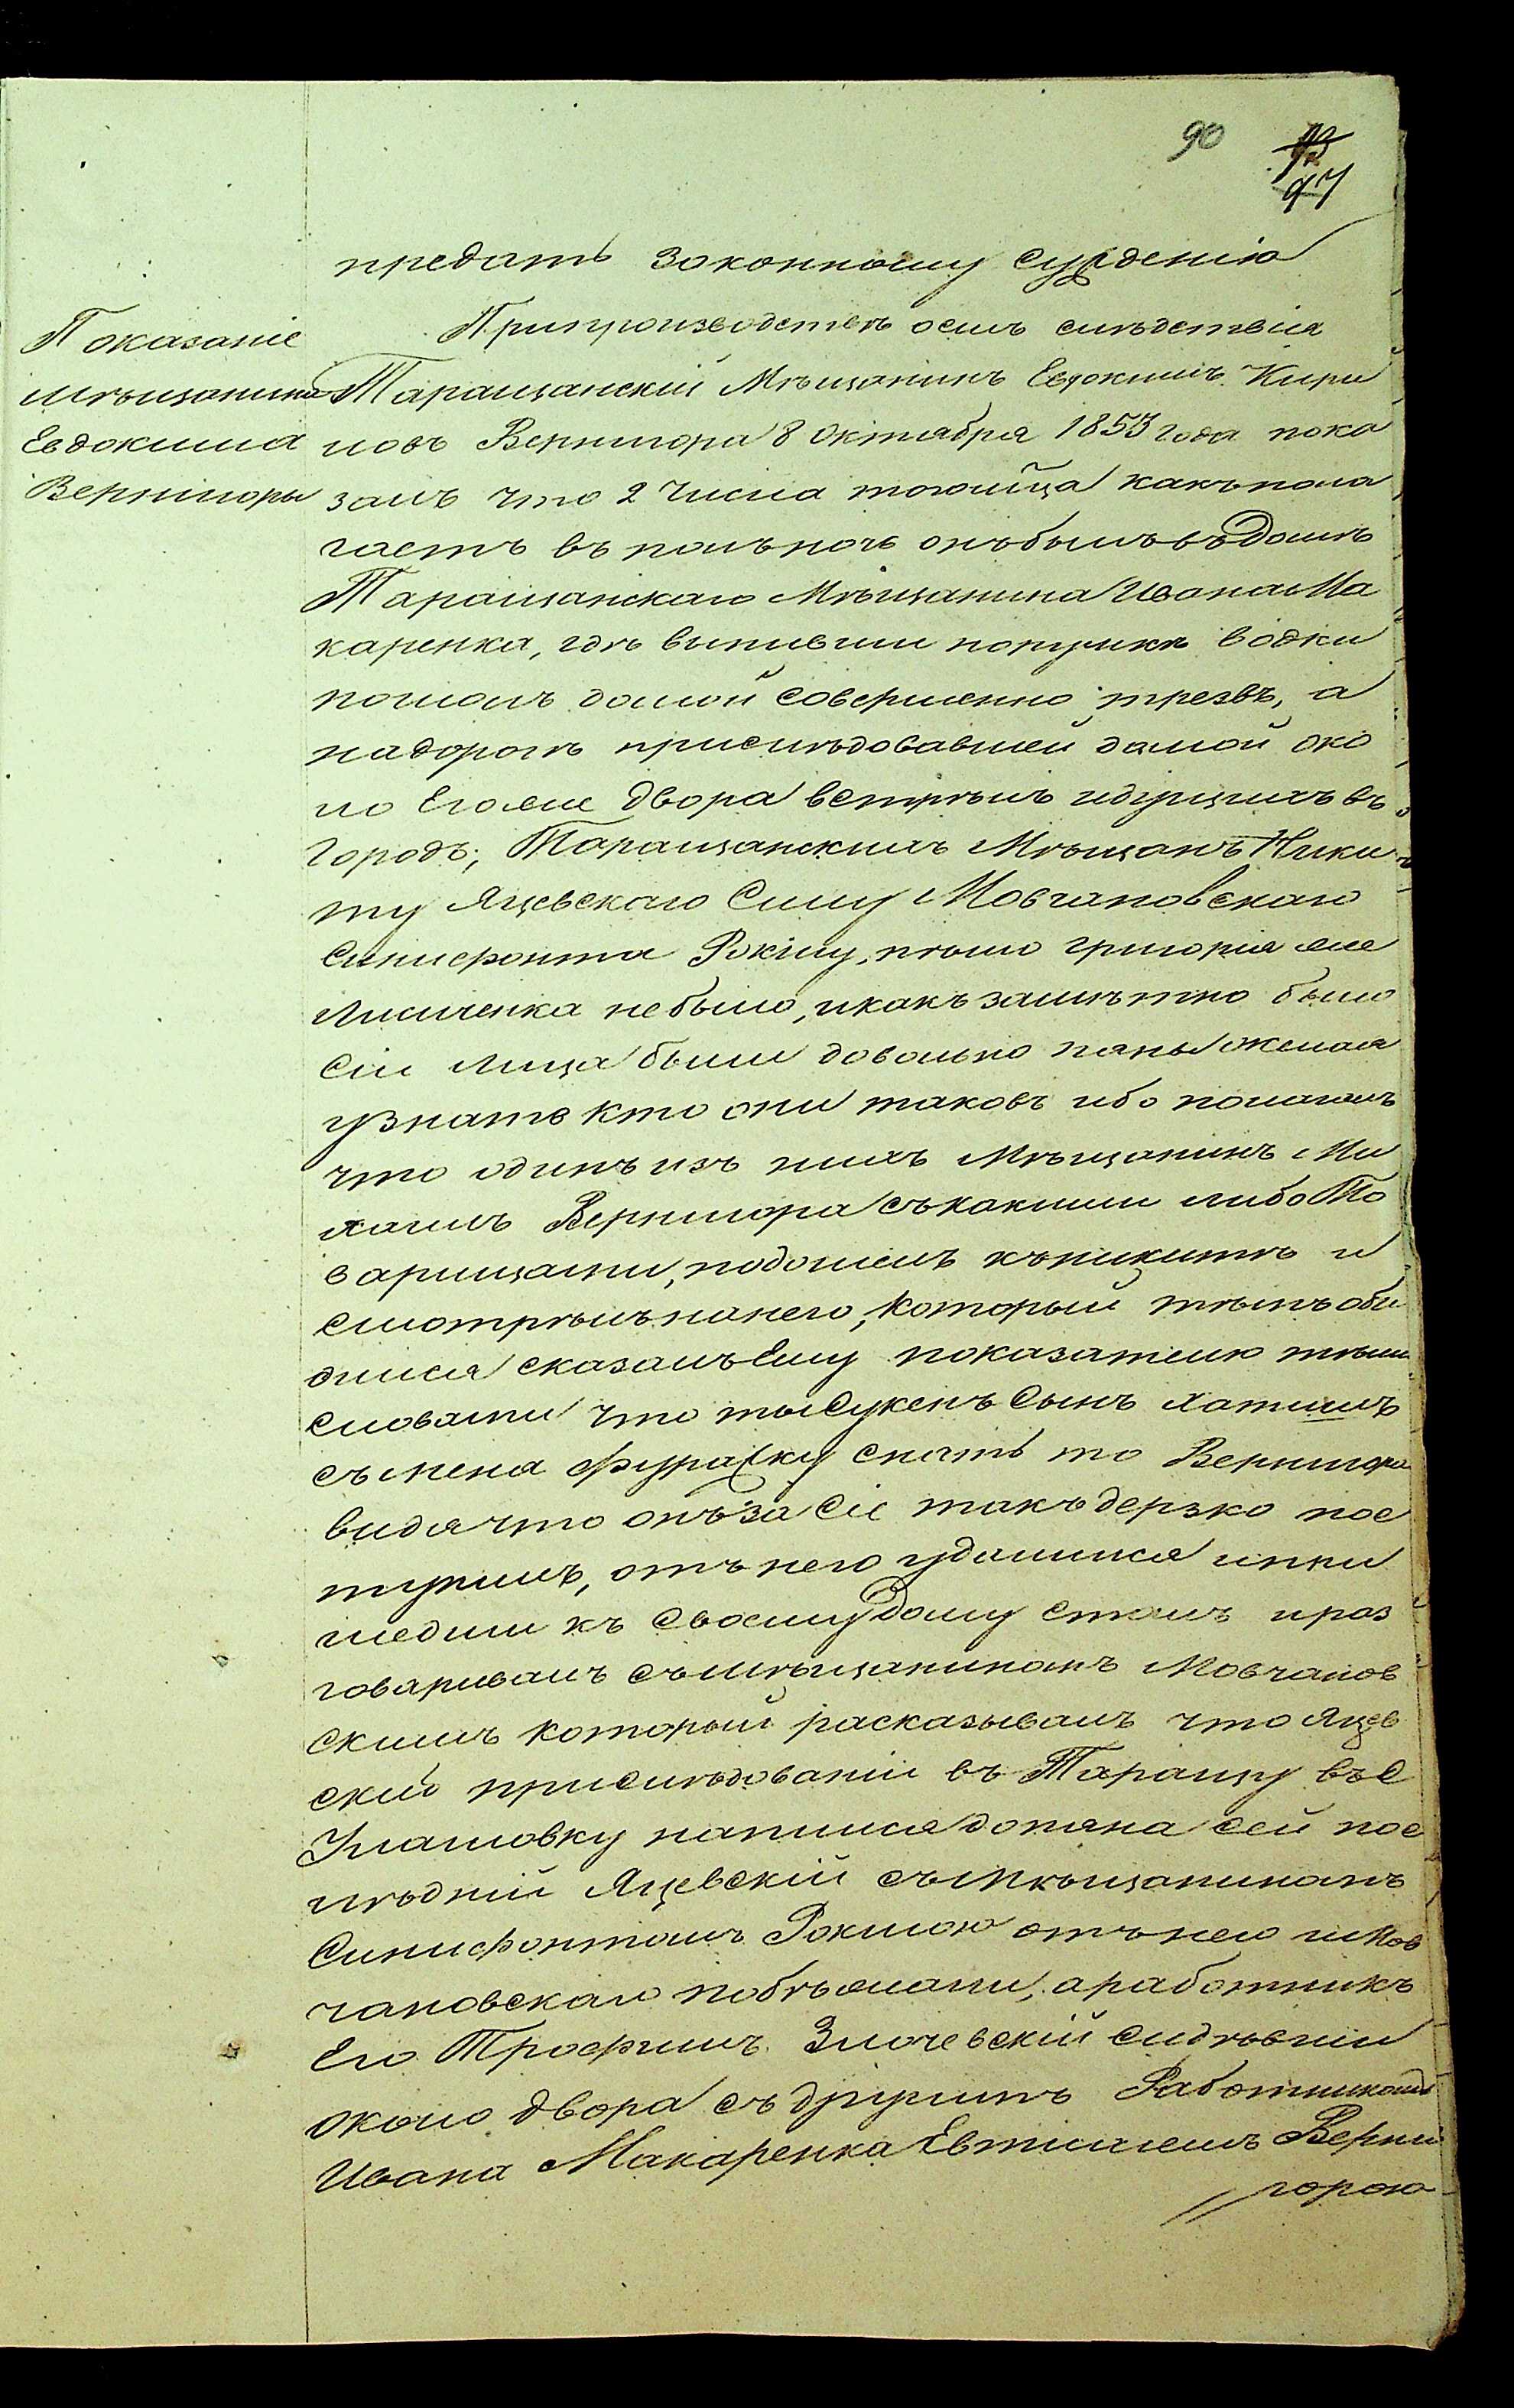 90
97
предать законному сужденію
Показаніе
мѣщанина
Евдокима
Вернигоры
Припроизводствѣ осемъ слѣдствія
Таращанскій Мѣщанинъ Евдокимъ Кири
ловъ Вернигора 8 Октября 1853 года пока
залъ что 2 Числа тогом҃ца какъпола
гаетъ въ полъночь онъбылъвъДомѣ
Таращанскаго Мѣщанина Ивана Ма
каренка, гдѣ выпивши порцыю водки
пошолъ домой совершенно трезвъ, а
надорогѣ прислѣдовавшей домой око
ло Егоже двора встрѣлъ идущихъ въ
городъ; Таращанскихъ Мѣщанъ Ники
ту Яцевскаго Силу Мовчановскаго
Ксенофонта Рокшу, нѣмо Григорія же
Лисиченка небыло, икакъ замѣтно было
сіи лица были довольно пяны желая
узнать кто они таковъ ибо полагалъ
что одинъ изъ нихъ Мѣщанинъ Ми
хаилъ Вернигора съкакими либо То
варищами, подошелъ къникитѣ и
смотрѣлънанего, который тѣмъ оби
дился сказалъЕму показателю тѣми
словами что тыСукенъ Сынъ хатишъ
съ меня Фуражку снять то Вернигора
видячто онъ за сіе такъ дерзко пос
тупилъ, отънего удалился ипри
шедши къ своемуДому сталъ ираз
говаривалъ съмѣщаниномъ Мовчанов
скимъ который расказывалъ что Яцев
скій прислѣдованіи въ Таращу въС
Улашовку напился допяна сей пос
лѣдній Яцевскій съМѣщаниномъ
Ксенофонтомъ Рокшою отънего иМов
чановскаго побѣжали, аработникъ
Его Трофимъ Злочевскій сидѣвши
около двора съ другимъ Работникомъ
Ивана Макаренка Евтихіемъ Верни
горою